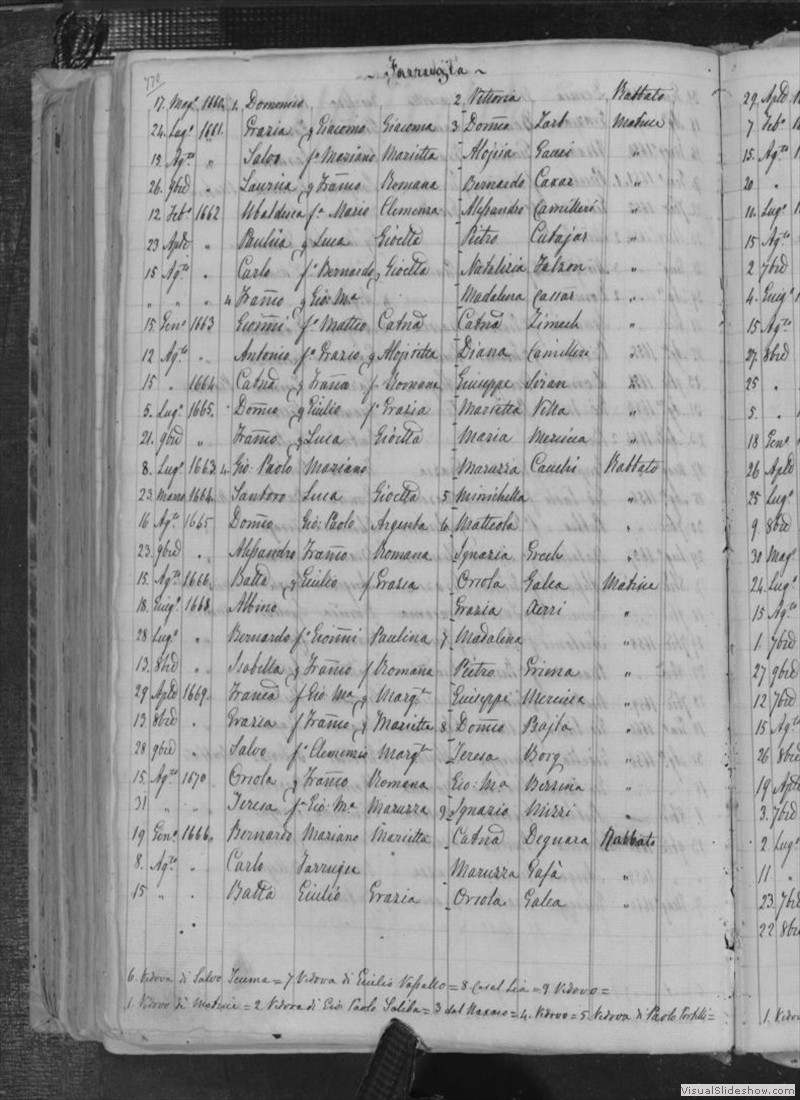 770
~ Farrugia ~
17. Magº 1660. 1. Domenico 2. Vittoria Rabbato
24. Lugº 1661. Grazia q Giacomo Giacoma 3 Domco Zart Matrice
13. Agto " Salvo fº Mariano Marietta Aloisia Gauci "
26. 9bre " Laurica q Franco Romana Bernardo Caxar "
12 Febº 1662 Ubaldesca fª Mario Clemenza Alessandro Camilleri "
23 Aple " Paulica q Luca Gioetta Pietro Cutajar "
15 Agto . Carlo fº Bernardo q Gioetta Natalizia Falzon "
" " " 4 Franco q Gio: Mª " Madalena Cassar "
15 Genº 1663 Gionni fº Matteo Catna Catna Zimech "
12 Agto " Antonio fº Grazio q Aloisetta Diana Camilleri "
15 " 1664 Catna q Franco f Romana Giuseppe Siran "
5. Lugº 1665. Domco q Giulio fº Grazia Marietta Vella "
21. 9bre " Franco q Luca Gioetta Maria Mercieca "
8. Lugº 1663 4. Gio: Paolo Mariano Maruzza Cauchi Rabbato
23. Marzo 1664. Santoro Luca Gioetta 5 Mimichella "
16 Agto 1665 Domco Gio: Paolo Argenta 6. Matteola "
23. 9bre . Alessandro Franco Romana Ignazia Grech "
15. Agto 1666. Batta q Giulio f Grazia Oriola Galea Matrice
18. Giugº 1668. Albino Grazia Axerri "
28 Lugº " Bernardo fº Gionni Paulina 7 Madalena "
13. 8bre " Isabella q Franco f Romana Pietro Grima "
29 Aple 1669. Franca f Gio: Mª q Margta Giuseppe Mercieca "
13. 8bre . Grazia f Franco q Marietta 8 Domco Bajla "
28 9bre " Salvo fº Clemenzio Margta Teresa Borg "
15. Agto 1670 Oriola q Franco Romana Gio: Mª Bezzina "
31 " " Teresa fª Gio: Mª Maruzza 9 Ignazio Mizzi "
19 Genº 1666. Bernardo Mariano Marietta Catna Deguara Rabbato
8. Agto . Carlo Farrugia " Maruzza Gafà "
15 " " Batta Giulio Grazia Oriola Galea "
6. Vedova di Salvo Teuma = 7 Vedova di Giulio Vassallo = 8 Casal Lia = 9 Vedovo =
1. Vedovo di Matrice = 2 Vedova di Gio: Paolo Saliba = 3 dal Naxaro = 4. Vedovo = 5 Vedova di Paolo Portelli =
29. Aple
7 Febº
15. Agto
20 "
11. Lugº
15 Agto
2 7bre
4. Giugº
15 Agto
27. 8bre
25 "
5. "
18 Genº
26 Aple
25 Lugº
9 8bre
30 Magº
24. Lugº
15 Agto
1. 7bre
27 9bre
12 7bre
15 Agto
26 8bre
19 Aple
3. 7bre
2 Lugº
11 "
23. 7bre
22 8bre
1. Vedov
VisualSlideshow.com